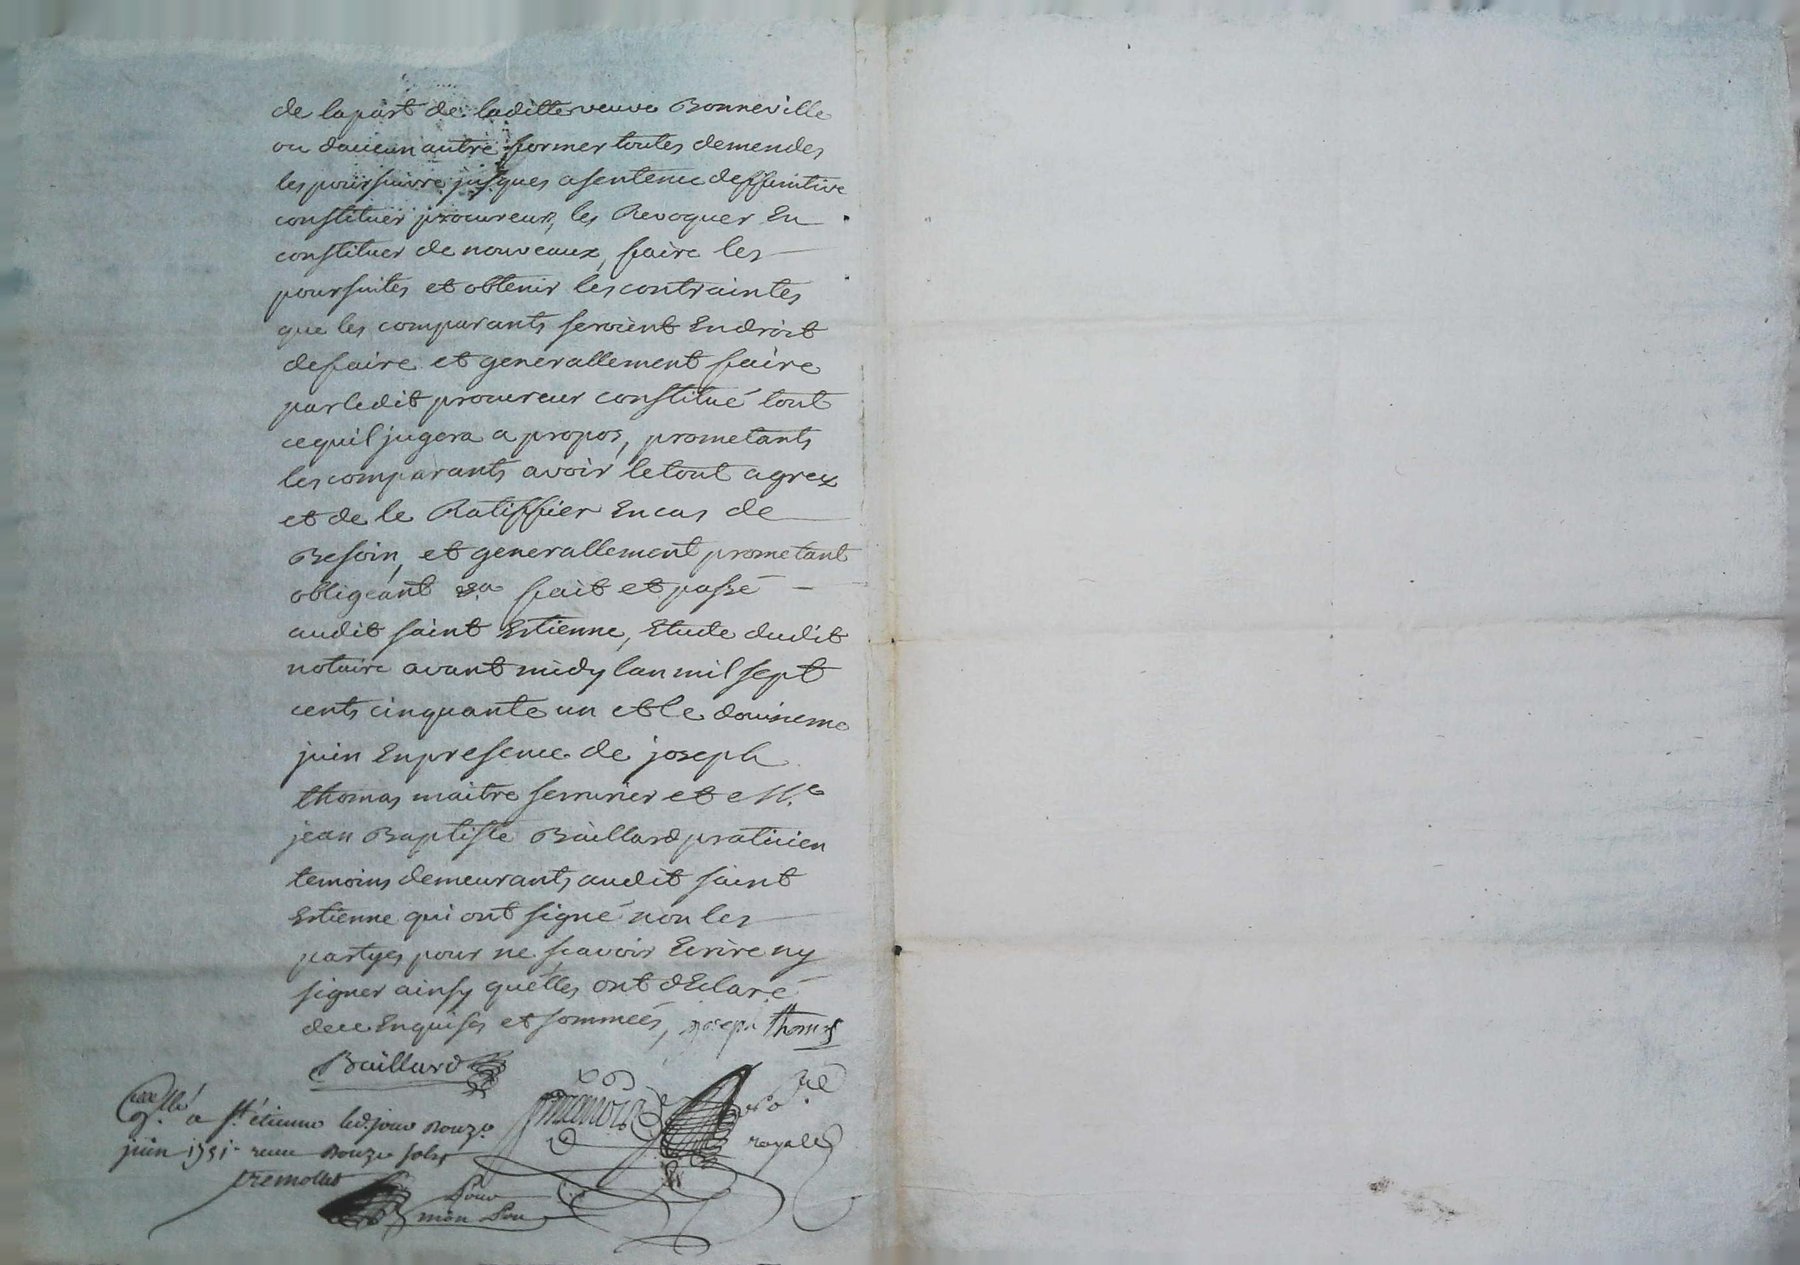 de lapart de laditte veuve Bonneville
ou daucun autre, former toutes demendes
les poursuivre jusques a sentence deffinitive
constituer procureurs, les Revoquer En
constituer de nouveaux, faire les
poursuites et obtenir les contraintes
que les comparants seroient En droit
de faire et generallement faire
par ledit procureur constitué tout
ce quil jugera a propos, prometants
les comparants avoir le tout agrex
et de le Ratiffier En cas de
Besoin, et generallement prometant
obligeant &a fait et passé
audit saint Estienne, Etude dudit
notaire avant midy lan mil sept
cents cinquante un et le douzieme
juin En presence de joseph
thomas maitre serrurier et Me
jean Baptiste Baillard praticien
temoins demeurants audit saint
Estienne qui ont signé non les
partyes pour ne scavoir Ecrire ny
signer ainsy quelles ont dEclaré
de ce Enquises et sommées, joseph thomas
Baillard
a st étienne led. jour Douze
juin 1751. recu Douze sols
tremollet
royal